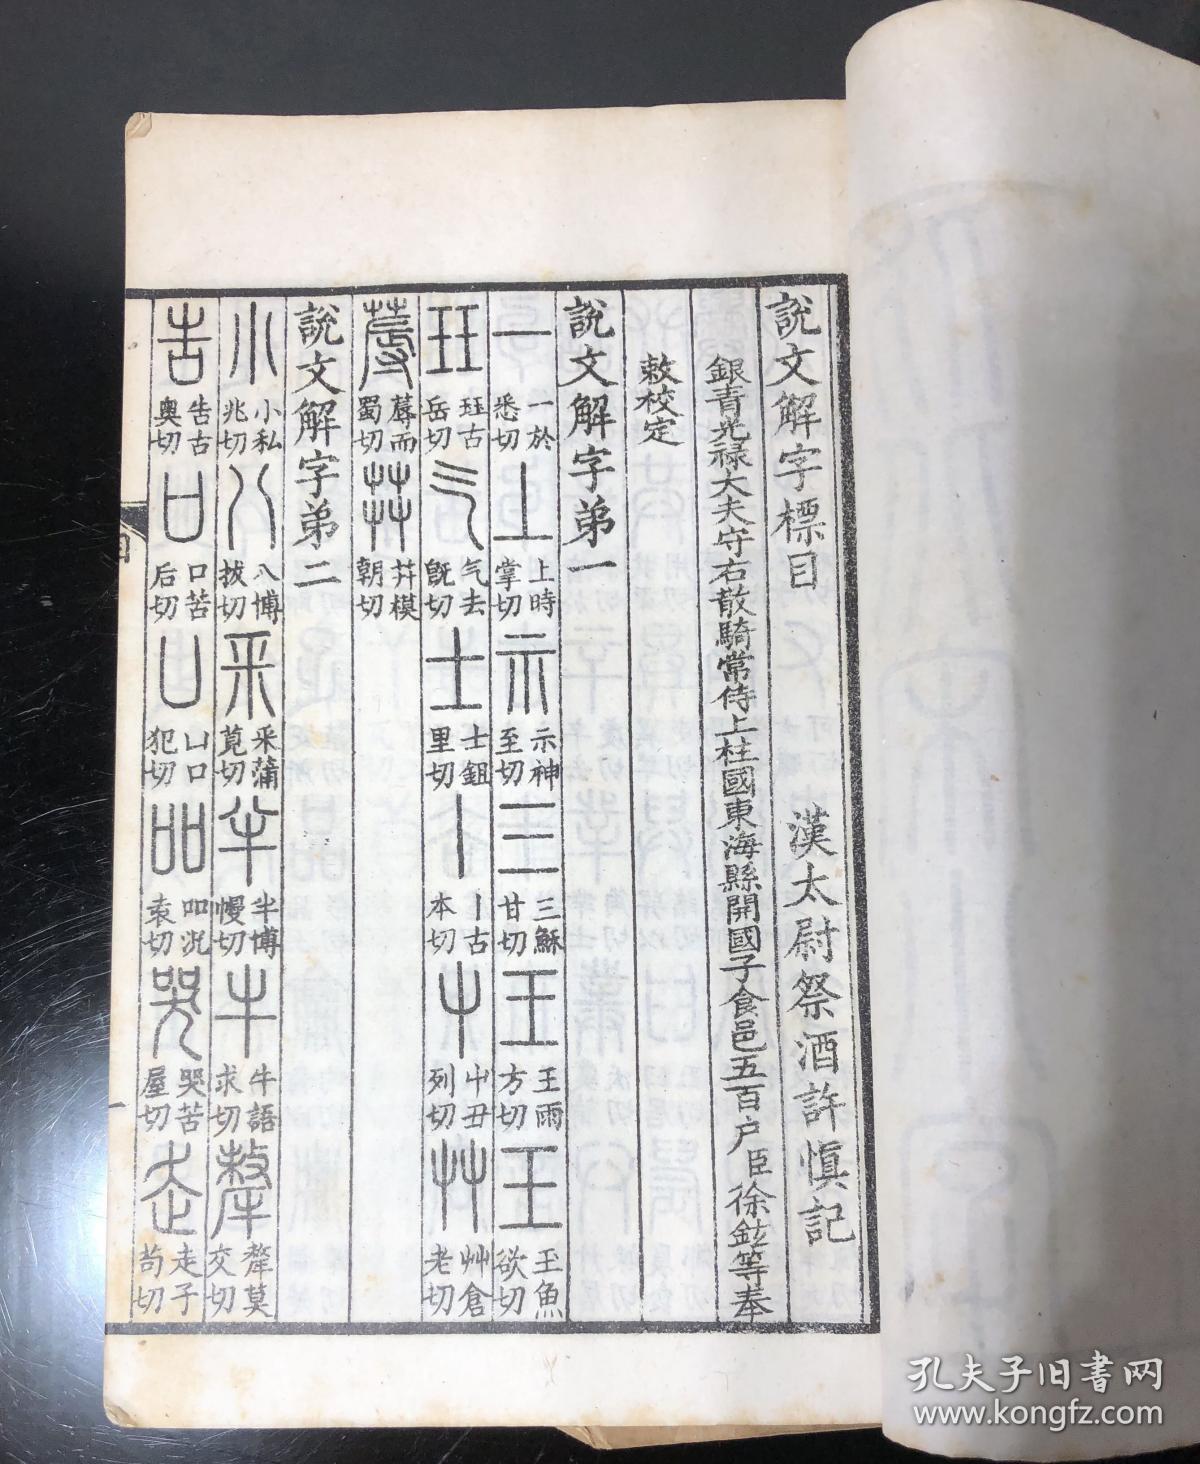 說文解字標目
漢太尉祭酒許慎記
銀青光祿大夫守右散騎常侍上柱國東海縣開國子食邑五百戶臣徐鉉等奉
敕校定
說文解字弟一
一 一於悉切 丄 上時掌切 示 示神至切 三 三穌甘切 王 王雨方切 王 王魚欲切
玨 玨古岳切 气 气去旣切 士 士鉏里切 丨 丨古本切 屮 屮丑列切 艸 艸倉老切
蓐 蓐而蜀切 茻 茻模朝切
說文解字弟二
小 小私兆切 八 八博拔切 釆 釆蒲莧切 半 半博幔切 牛 牛語求切 犛 犛莫交切
告 告古奧切 口 口苦后切 凵 凵口犯切 吅 吅況袁切 哭 哭苦屋切 走 走子苟切
一
孔夫子旧书网
www.kongfz.com